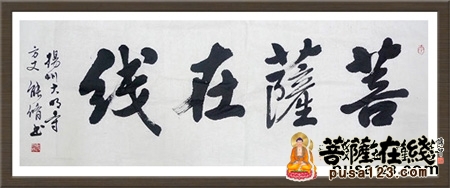 菩薩在线
揚州大明寺
方丈能修书
菩薩在线
pusa123.com